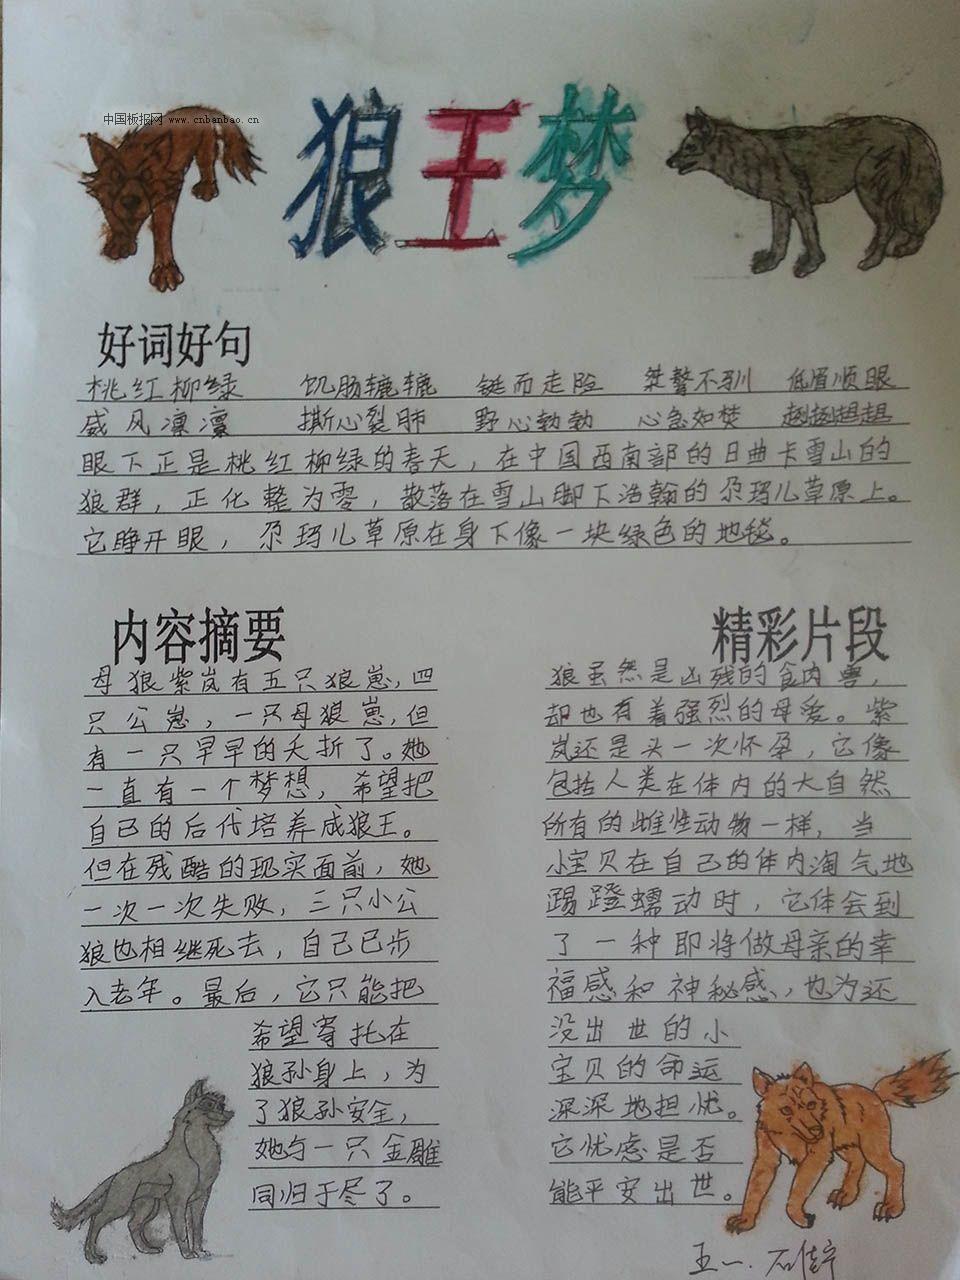 中国板报网 www.cnbanbao.cn
狼王梦
好词好句
桃红柳绿 饥肠辘辘 铤而走险 桀骜不驯 低眉顺眼
威风凛凛 撕心裂肺 野心勃勃 心急如焚 趔趔趄趄
眼下正是桃红柳绿的春天，在中国西南部的日曲卡雪山的
狼群，正化整为零，散落在雪山脚下浩翰的尕玛儿草原上。
它睁开眼，尕玛儿草原在身下像一块绿色的地毯。
内容摘要
母狼紫岚有五只狼崽，四
只公崽，一只母狼崽，但
有一只早早的夭折了。她
一直有一个梦想，希望把
自己的后代培养成狼王。
但在残酷的现实面前，她
一次一次失败，三只小公
狼也相继死去，自己已步
入老年。最后，它只能把
希望寄托在
狼孙身上，为
了狼孙安全，
她与一只金雕
同归于尽了。
精彩片段
狼虽然是凶残的食肉兽，
却也有着强烈的母爱。紫
岚还是头一次怀孕，它像
包括人类在体内的大自然
所有的雌性动物一样，当
小宝贝在自己的体内淘气地
踢蹬蠕动时，它体会到
了一种即将做母亲的幸
福感和神秘感，也为还
没出世的小
宝贝的命运
深深地担忧。
它忧虑是否
能平安出世。
五一.石佳宇